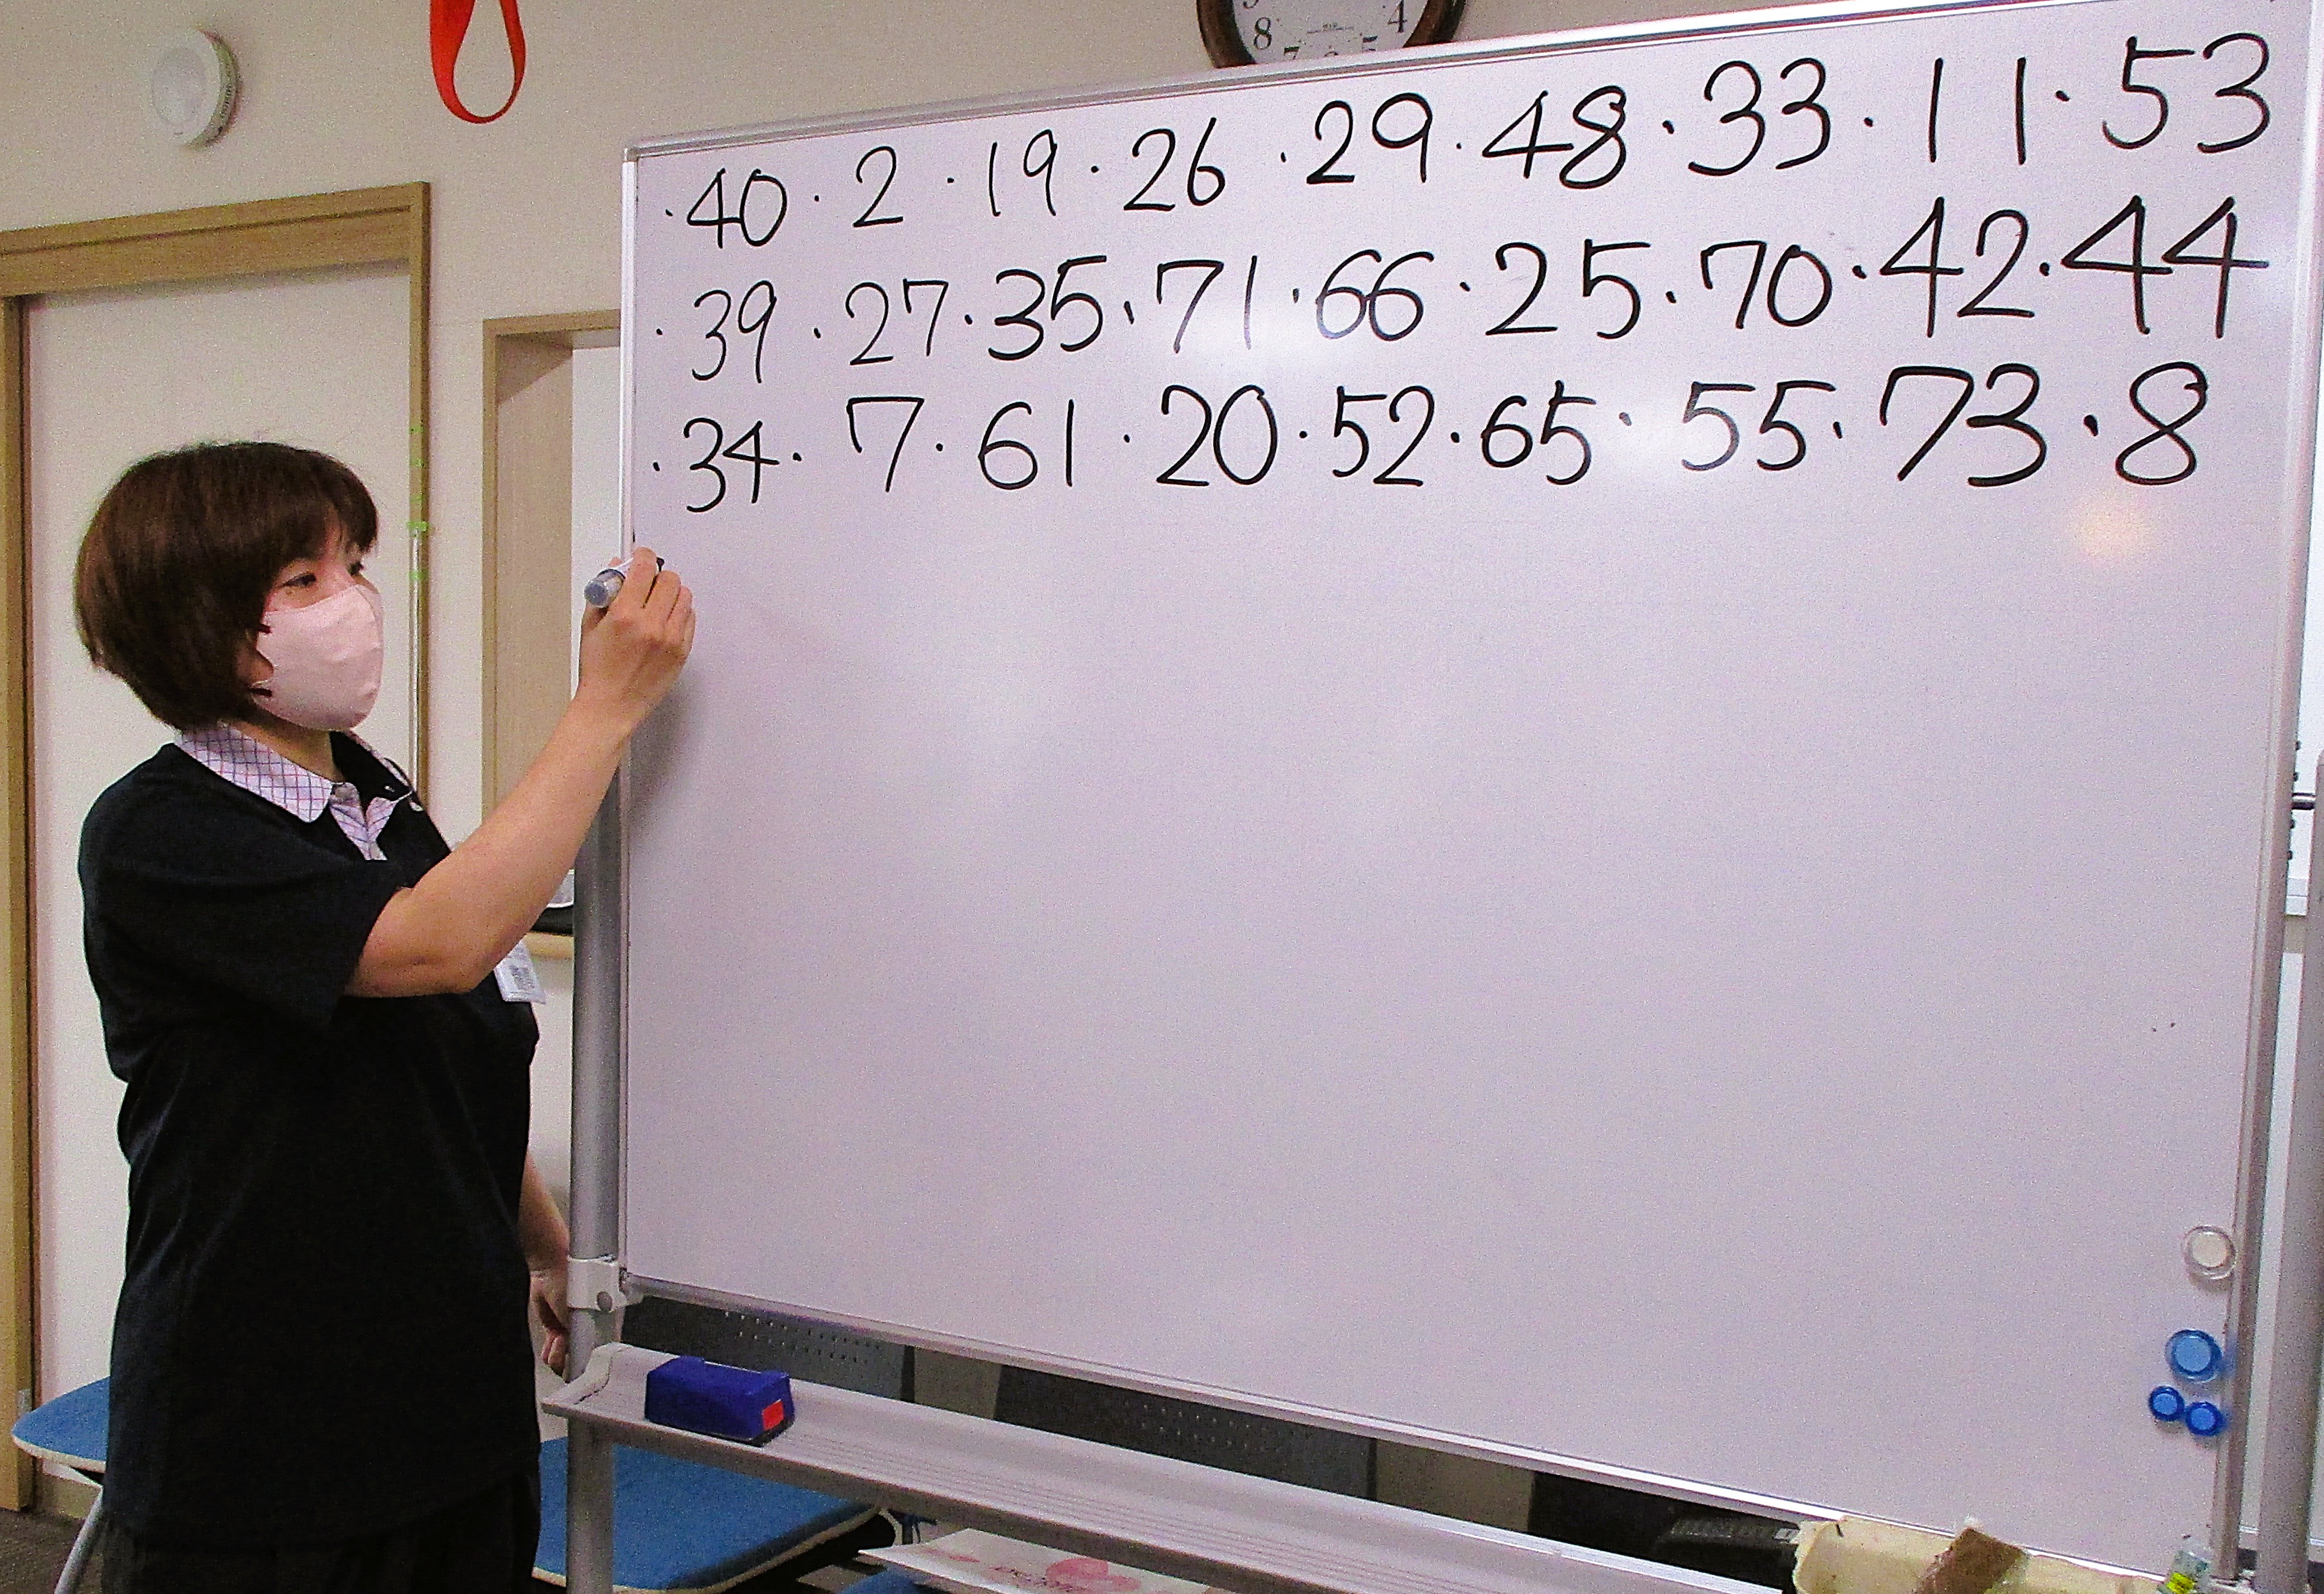 8 7 6 5 4
・40・2・19・26・29・48・33・11・53
・39・27・35・71・66・25・70・42・44
・34・7・61・20・52・65・55・73・8